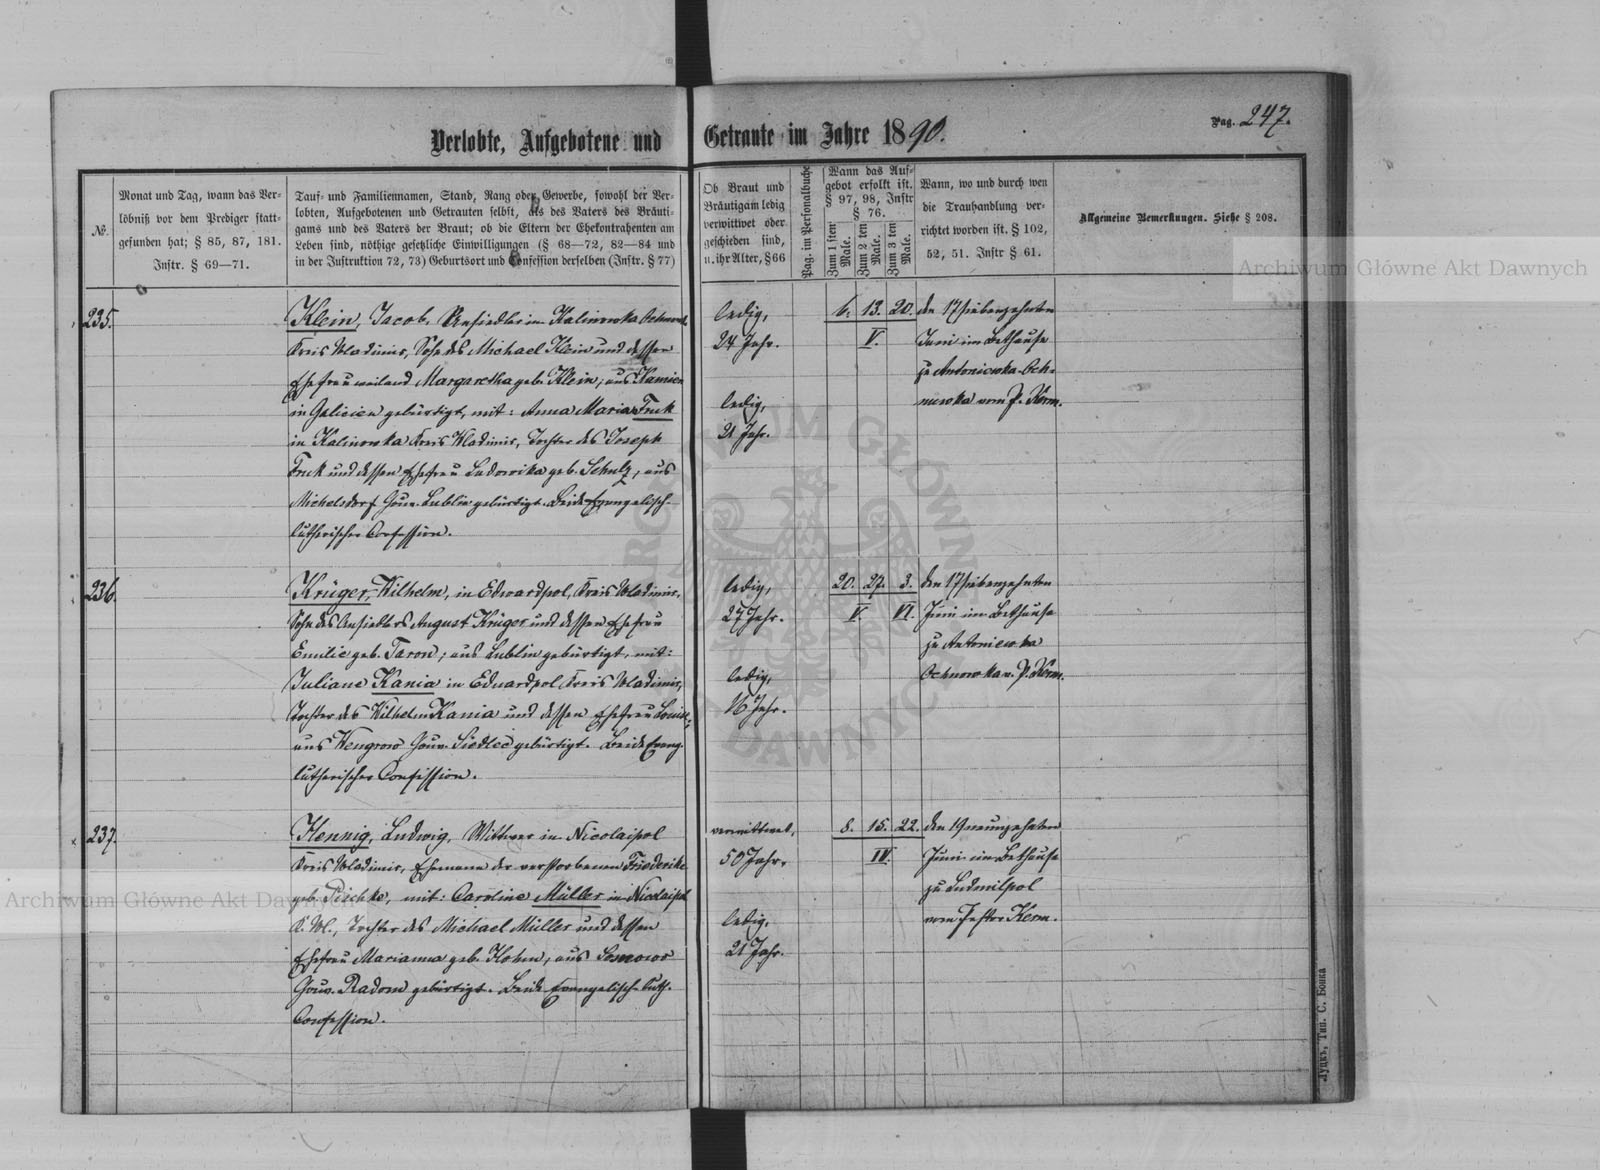 Verlobte, Aufgebotene und Getraute im Jahre 1890.
Pag. 247.
№.
Monat und Tag, wann das Ver-
löbniß vor dem Prediger statt-
gefunden hat; § 85, 87, 181.
Instr. § 69—71.
Tauf- und Familiennamen, Stand, Rang oder Gewerbe, sowohl der Ver-
lobten, Aufgebotenen und Getrauten selbst, als des Vaters des Bräuti-
gams und des Vaters der Braut; ob die Eltern der Ehekontrahenten am
Leben sind, nöthige gesetzliche Einwilligungen (§ 68—72, 82—84 und
in der Instruktion 72, 73) Geburtsort und Confession derselben (Instr. § 77)
Ob Braut und
Bräutigam ledig
verwittwet oder
geschieden sind,
u. ihr Alter, § 66
Pag. im Personalbuche
Wann das Auf-
gebot erfolkt ist.
§ 97, 98, Instr
§ 76.
Zum 1 sten
Male.
Zum 2 ten
Male.
Zum 3 ten
Male.
Wann, wo und durch wen
die Trauhandlung ver-
richtet worden ist. § 102,
52, 51. Instr § 61.
Allgemeine Bemerkungen. Siehe § 208.
Archiwum Główne Akt Dawnych
235.
Klein, Jacob, Ansiedler in Kalinowka Ochnowk.
Kreis Wladimir, Sohn des Michael Klein und dessen
Ehefrau weiland Margaretha geb. Klein, aus Kamien
in Galicien gebürtigt, mit: Anna Maria Fruk
in Kalinowka Kreis Wladimir, Tochter des Joseph
Fruk und dessen Ehefrau Ludowika geb. Schulz, aus
Michelsdorf Gouv. Lublin gebürtigt. Beide Evangelisch-
lutherischer Confession.
ledig,
24 Jahr.
ledig,
21 Jahr.
6. 13. 20.
V.
den 17 siebenzehnten
Juni im Bethause
zu Antoniewka-Och-
nowka vom P. Kerm.
236.
Krüger, Wilhelm, in Edwardpol, Kreis Wladimir,
Sohn des Ansiedlers August Krüger und dessen Ehefrau
Emilie geb. Taron; aus Lublin gebürtigt, mit:
Juliane Kania in Eduardpol Kreis Wladimir,
Tochter des Wilhelm Kania und dessen Ehefrau Louise,
aus Wengrow Gouv. Siedlec gebürtigt. Beide Evang.
lutherischer Confission.
ledig,
27 Jahr.
ledig,
16 Jahr.
20. 27. 3.
V. VI.
den 17 siebenzehnten
Juni im Bethause
zu Antoniewka
Ochnowka v. P. Kerm.
237.
Hennig, Ludwig, Wittwer in Nicolaipol
Kreis Wladimir, Ehemann der verstorbenen Friederike
geb. Pischke, mit: Caroline Müller in Nicolaipol
K. Wl., Tochter des Michael Müller und dessen
Ehefrau Marianna geb. Hohm, aus
Gouv. Radom gebürtigt. Beide Evangelisch-luth.
Confession.
verwittwet,
50 Jahr,
ledig,
21 Jahr.
8. 15. 22.
IV.
den 19 neunzehnten
Juni im Bethause
zu Ludmilpol
vom Pastor Kerm.
Archiwum Główne Akt Dawnych
ARCHIWUM GŁÓWNE AKT DAWNYCH
Луцкъ, Тип. С. Бонка